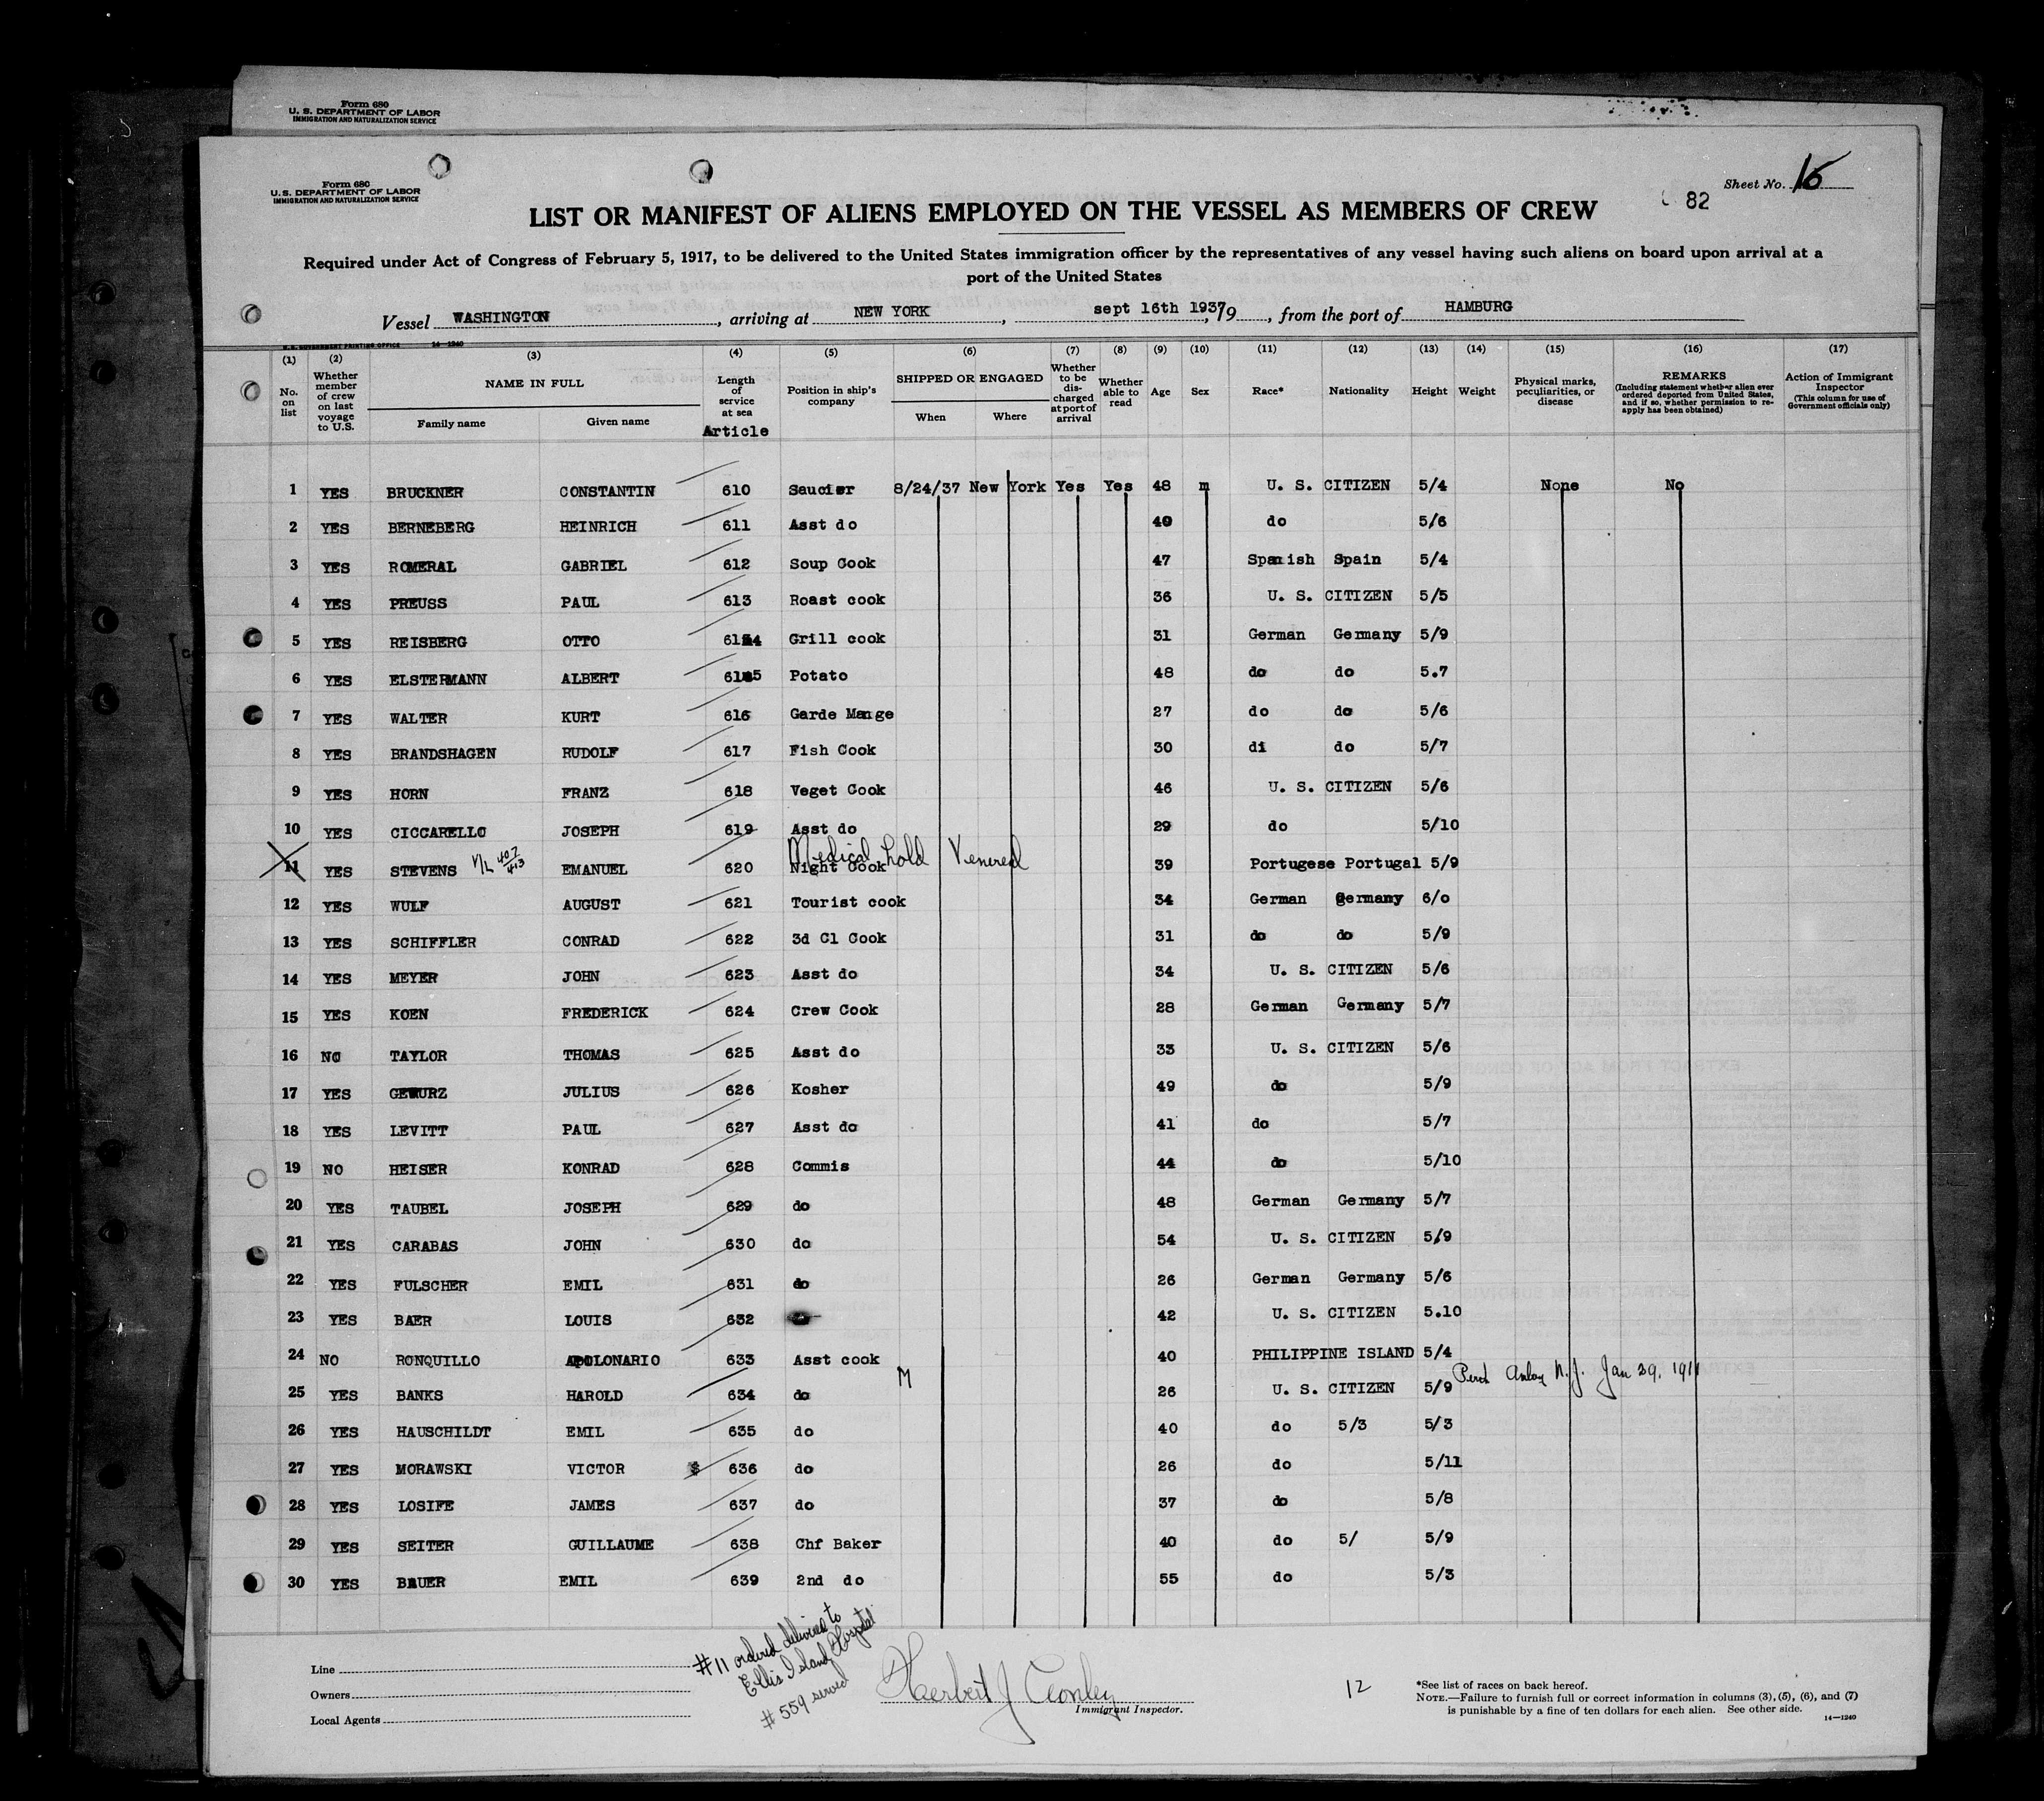 Form 680
U. S. DEPARTMENT OF LABOR
IMMIGRATION AND NATURALIZATION SERVICE
Form 680
U. S. DEPARTMENT OF LABOR
IMMIGRATION AND NATURALIZATION SERVICE
Sheet No. 16
82
LIST OR MANIFEST OF ALIENS EMPLOYED ON THE VESSEL AS MEMBERS OF CREW
Required under Act of Congress of February 5, 1917, to be delivered to the United States immigration officer by the representatives of any vessel having such aliens on board upon arrival at a
port of the United States
Vessel WASHINGTON, arriving at NEW YORK, sept 16th 1937, 19, from the port of HAMBURG
U.S. GOVERNMENT PRINTING OFFICE 14—1240
(1) No. on list
(2) Whether member of crew on last voyage to U.S.
(3) NAME IN FULL Family name Given name
(4) Length of service at sea Article
(5) Position in ship's company
(6) SHIPPED OR ENGAGED When Where
(7) Whether to be discharged at port of arrival
(8) Whether able to read
(9) Age
(10) Sex
(11) Race*
(12) Nationality
(13) Height
(14) Weight
(15) Physical marks, peculiarities, or disease
(16) REMARKS (Including statement whether alien ever ordered deported from United States, and if so, whether permission to re-apply has been obtained)
(17) Action of Immigrant Inspector (This column for use of Government officials only)
1 YES BRUCKNER CONSTANTIN 610 Saucier 8/24/37 New York Yes Yes 48 m U. S. CITIZEN 5/4 None No
2 YES BERNEBERG HEINRICH 611 Asst do 40 do 5/6
3 YES ROMERAL GABRIEL 612 Soup Cook 47 Spanish Spain 5/4
4 YES PREUSS PAUL 613 Roast cook 36 U. S. CITIZEN 5/5
5 YES REISBERG OTTO 614 Grill cook 31 German Germany 5/9
6 YES ELSTERMANN ALBERT 615 Potato 48 do do 5.7
7 YES WALTER KURT 616 Garde Mange 27 do do 5/6
8 YES BRANDSHAGEN RUDOLF 617 Fish Cook 30 di do 5/7
9 YES HORN FRANZ 618 Veget Cook 46 U. S. CITIZEN 5/6
10 YES CICCARELLO JOSEPH 619 Asst do 29 do 5/10
Medical hold Venered
11 YES STEVENS V/L 407/413 EMANUEL 620 Night Cook 39 Portugese Portugal 5/9
12 YES WULF AUGUST 621 Tourist cook 34 German Germany 6/0
13 YES SCHIFFLER CONRAD 622 3d Cl Cook 31 do do 5/9
14 YES MEYER JOHN 623 Asst do 34 U. S. CITIZEN 5/6
15 YES KOEN FREDERICK 624 Crew Cook 28 German Germany 5/7
16 NO TAYLOR THOMAS 625 Asst do 33 U. S. CITIZEN 5/6
17 YES GEWURZ JULIUS 626 Kosher 49 do 5/9
18 YES LEVITT PAUL 627 Asst do 41 do 5/7
19 NO HEISER KONRAD 628 Commis 44 do 5/10
20 YES TAUBEL JOSEPH 629 do 48 German Germany 5/7
21 YES CARABAS JOHN 630 do 54 U. S. CITIZEN 5/9
22 YES FULSCHER EMIL 631 do 26 German Germany 5/6
23 YES BAER LOUIS 632 42 U. S. CITIZEN 5.10
24 NO RONQUILLO APOLONARIO 633 Asst cook 40 PHILIPPINE ISLAND 5/4
25 YES BANKS HAROLD 634 do M 26 U. S. CITIZEN 5/9 Perth Amboy N.J. Jan 29, 1911
26 YES HAUSCHILDT EMIL 635 do 40 do 5/3 5/3
27 YES MORAWSKI VICTOR $ 636 do 26 do 5/11
28 YES LOSIFE JAMES 637 do 37 do 5/8
29 YES SEITER GUILLAUME 638 Chf Baker 40 do 5/ 5/9
30 YES BAUER EMIL 639 2nd do 55 do 5/3
#11 ordered delivered to
Ellis Island Hospital
#559 served
Line
Owners
Local Agents
Herbert J Conley
Immigrant Inspector.
12
*See list of races on back hereof.
NOTE.—Failure to furnish full or correct information in columns (3), (5), (6), and (7)
is punishable by a fine of ten dollars for each alien. See other side.
14—1240